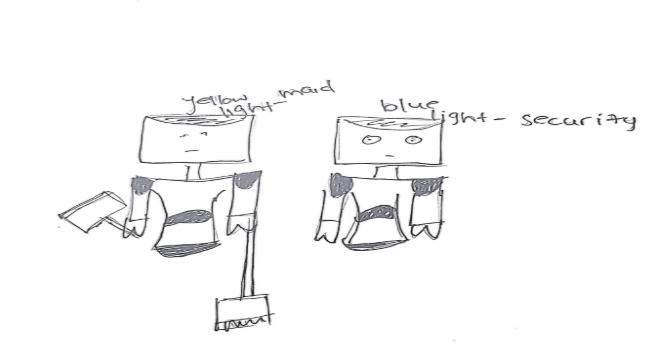 yellow light - maid
blue light - security